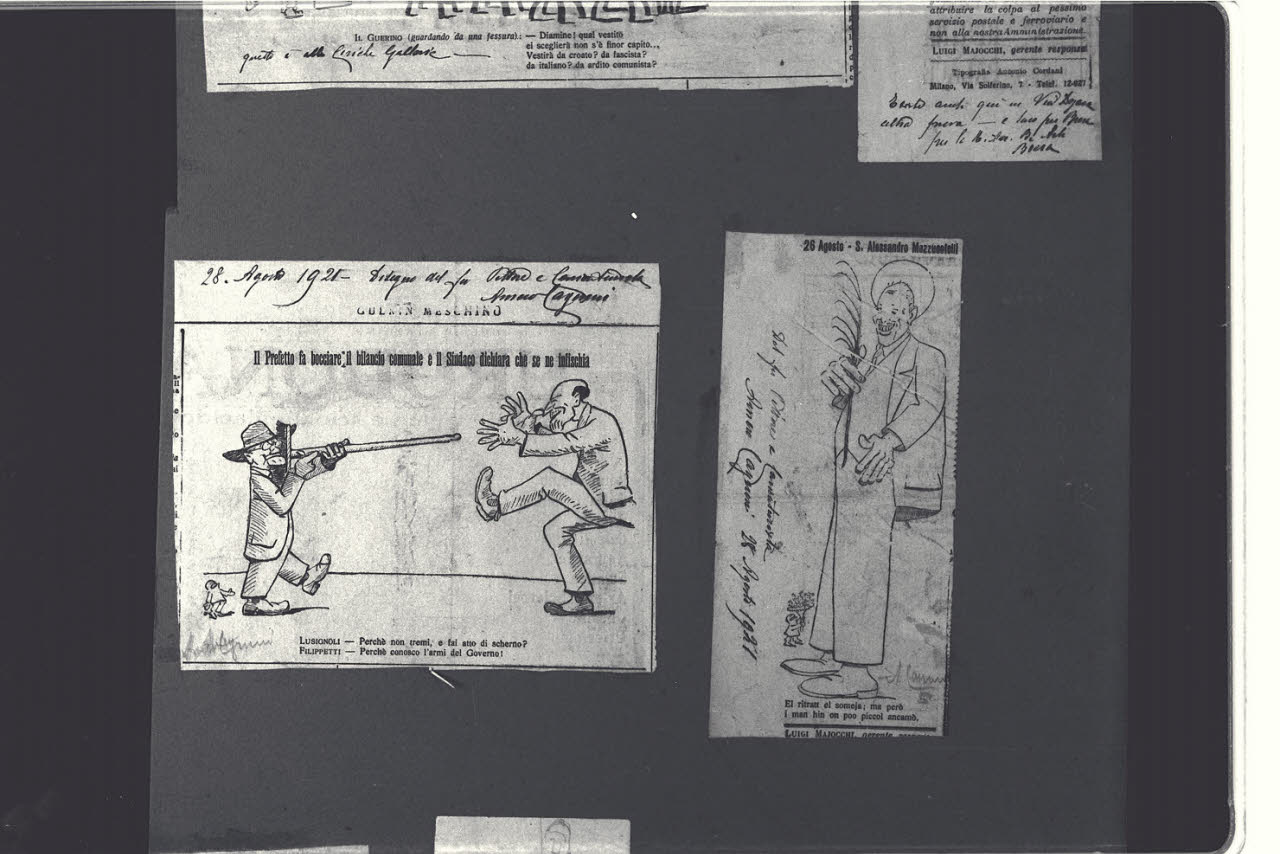 IL GUERINO (guardando da una fessura): — Diamine! qual vestito
ei sceglierà non s'è finor capito...
Vestirà da croato? da fascista?
da italiano? da ardito comunista?
questo è alla
attribuire la colpa al pessimo
servizio postale e ferroviario e
non alla nostra Amministrazione
LUIGI MAJOCCHI, gerente respons
Tipografia Antonio Cordani
Milano, Via Solferino, 7 - Telef. 12-827
anche qui in Via
altra — e
per le B. Arti
Brera
28. Agosto 1921 Disegno del fu Pittore e Caricaturista
Amero Cagnoni
GUERIN MESCHINO
Il Prefetto fa bocciare il bilancio comunale e il Sindaco dichiara che se ne infischia
LUSIGNOLI — Perchè non tremi, e fai atto di scherno?
FILIPPETTI — Perchè conosco l'armi del Governo!
26 Agosto - S. Alessandro Mazzucotelli
Del fu Pittore e Caricaturista
Amero Cagnoni 28 Agosto 1921
El ritratt el someja; ma però
i man hin on poo piccol ancamò.
LUIGI MAJOCCHI, gerente